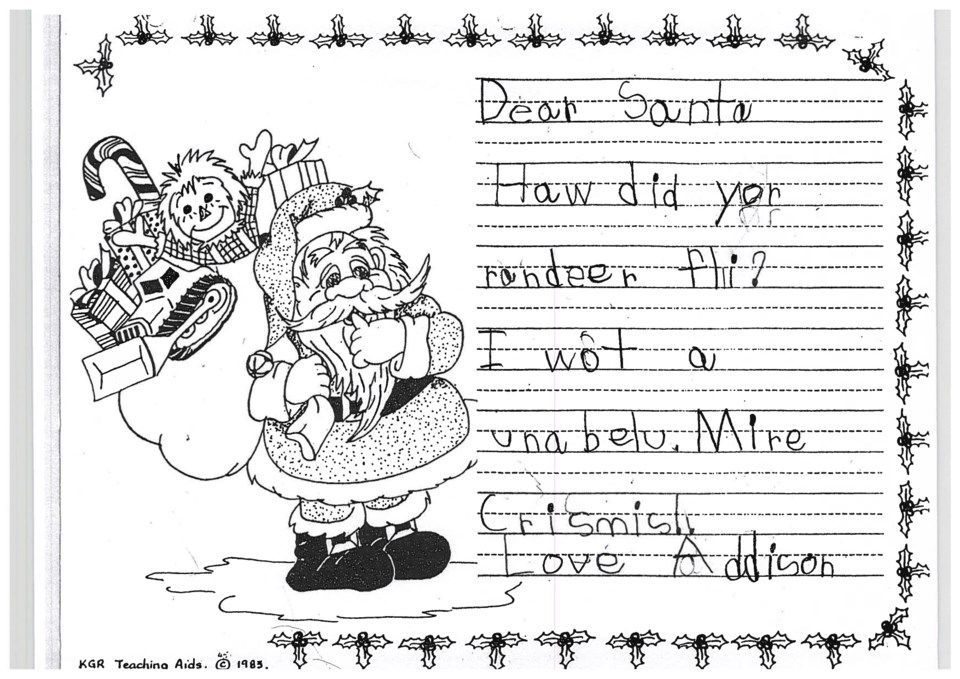 Dear Santa
Haw did yor
randeer fli?
I wot a
unabelu. Mire
Crismish.
Love Addison
KGR Teaching Aids. © 1983.